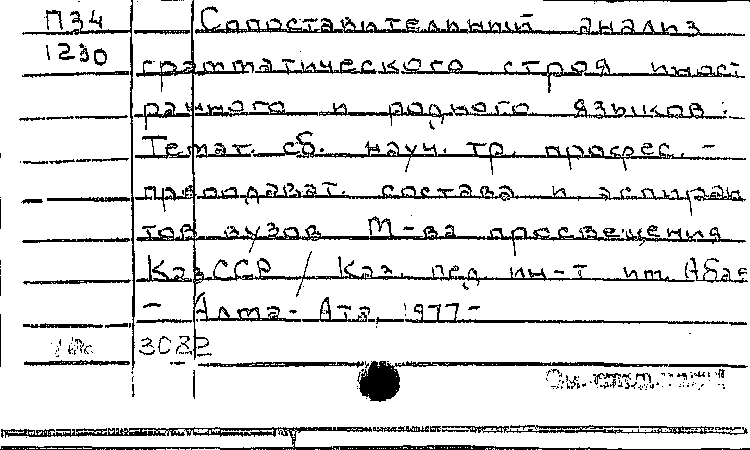 П34 Сопоставительный анализ
1230 грамматического строя иност
ранного и родного языков:
Темат. сб. науч. тр. профес.-
преподават. состава и аспиран
тов вузов М-ва просвещения
КазССР / Каз. пед. ин-т им. Абая
- Алма-Ата, 1977-
3082